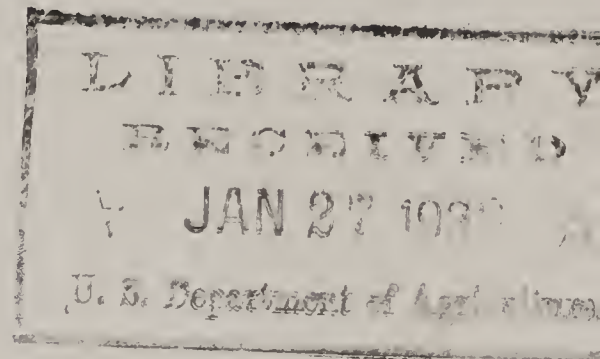 LIBRARY
RECEIVED
JAN 27
U. S. Department of Agriculture